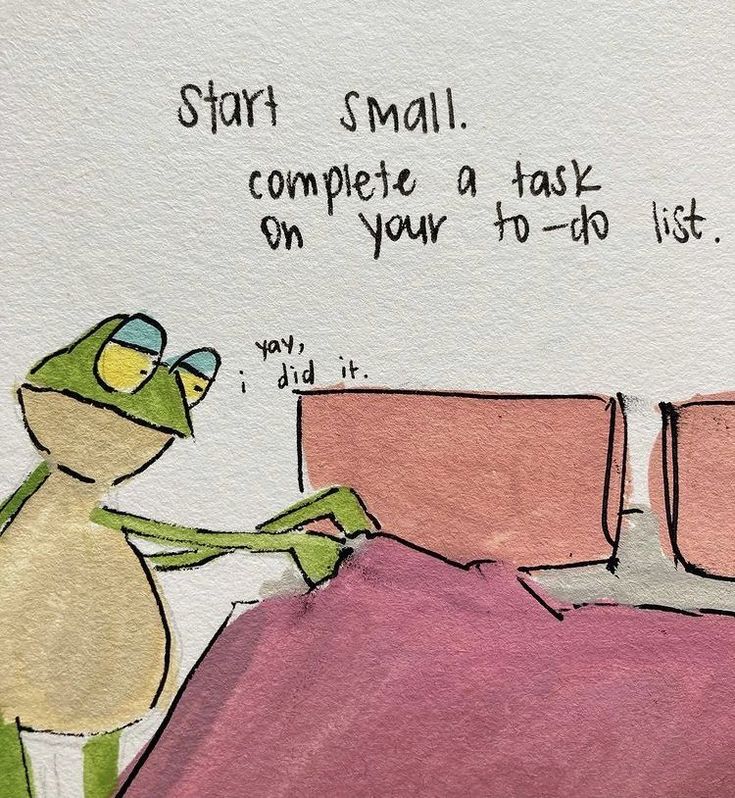 start small.
complete a task
on your to-do list.
yay,
i did it.